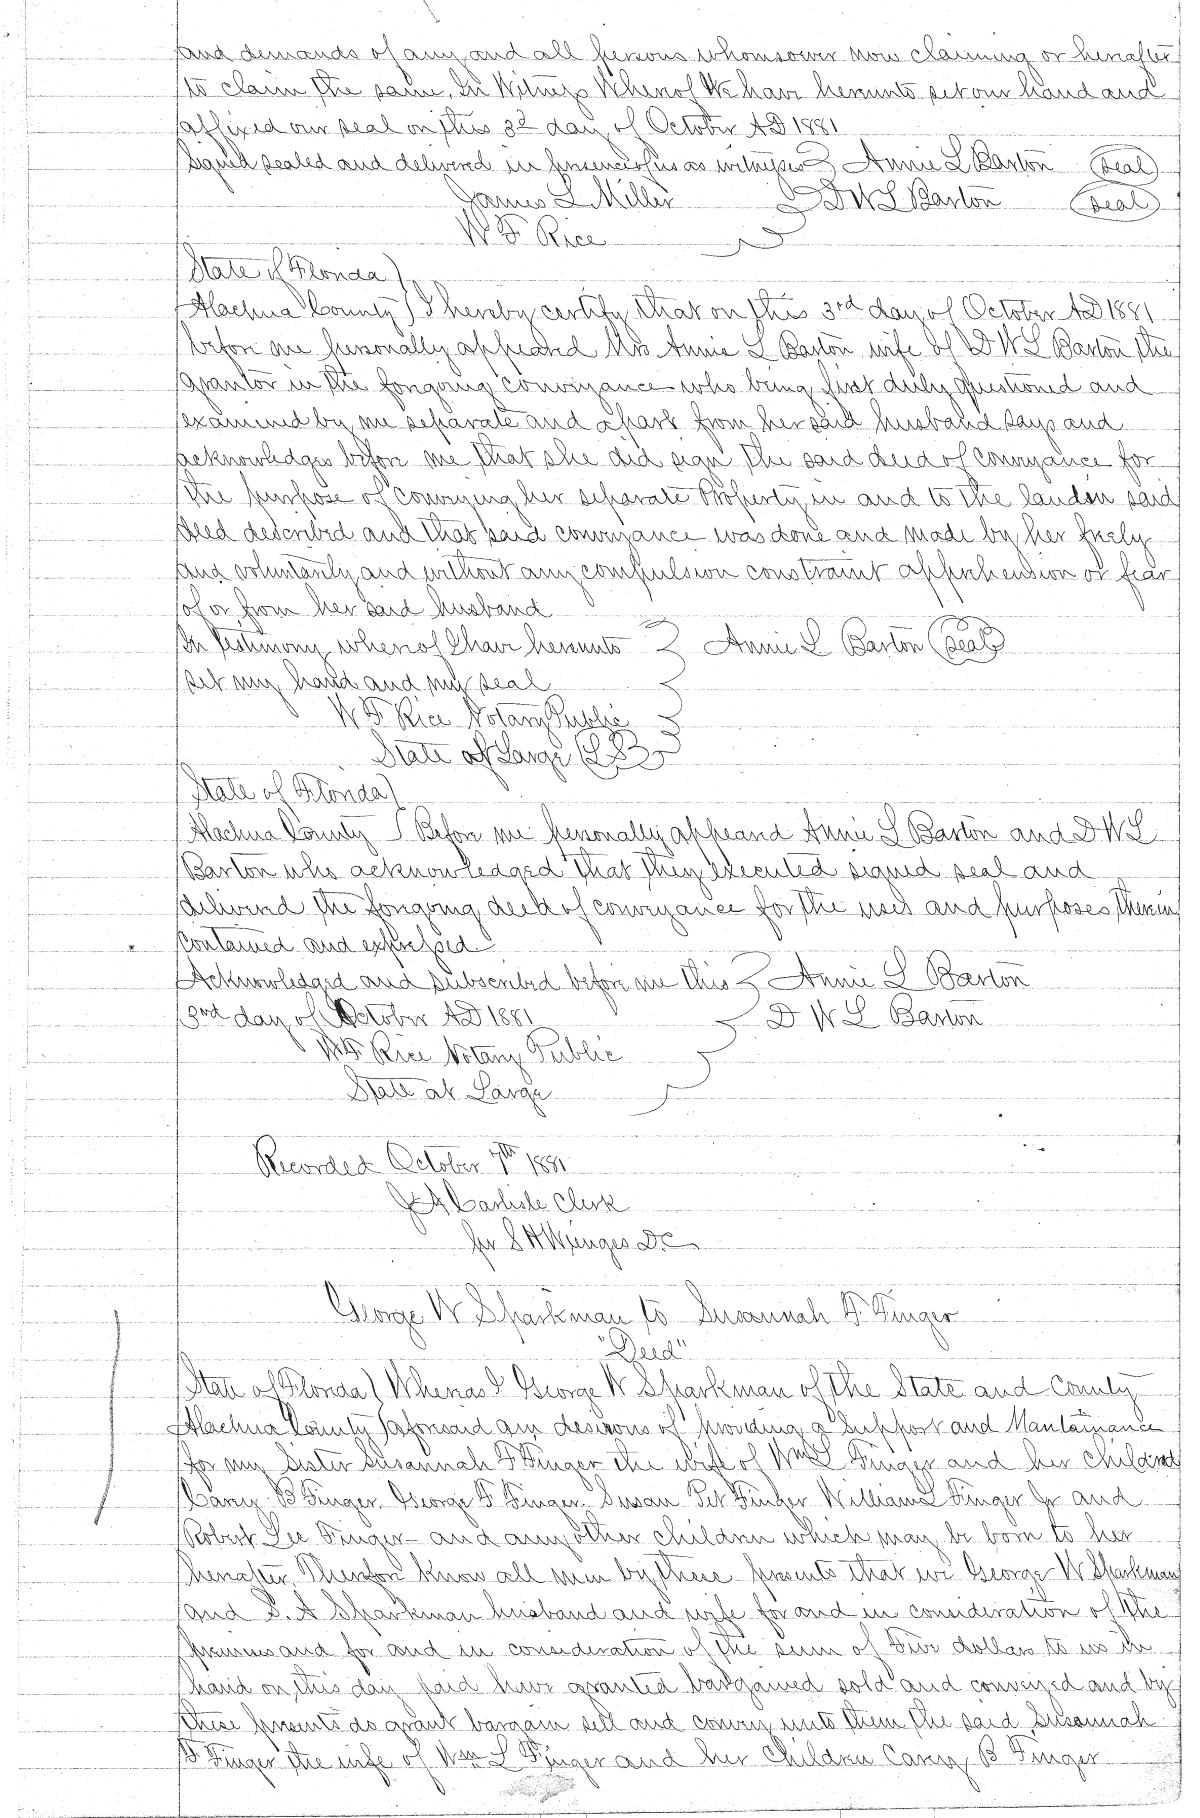 and demands of any and all persons whomsoever now claiming or hereafter
to claim the same, In Witness Whereof We have hereunto set our hand and
affixed our seal on this 3d day of October AD 1881
Signed sealed and delivered in presence of us as witnesses Annie L Barton (seal)
James L Miller D W L Barton (seal)
W F Rice
State of Florida)
Alachua County) I hereby certify that on this 3rd day of October AD 1881
before me personally appeared Mrs Annie L Barton wife of D W L Barton the
grantor in the foregoing conveyance who being first duly questioned and
examined by me separate and apart from her said husband says and
acknowledges before me that she did sign the said deed of conveyance for
the purpose of conveying her separate Property in and to the land in said
deed described and that said conveyance was done and made by her freely
and voluntarily and without any compulsion constraint apprehension or fear
of or from her said husband
In testimony whereof I have hereunto Annie L Barton (seal)
set my hand and my seal
W F Rice Notary Public
State at Large (L S)
State of Florida)
Alachua County ) Before me personally appeared Annie L Barton and D W L
Barton who acknowledged that they executed signed seal and
delivered the foregoing deed of conveyance for the uses and purposes therein
contained and expressed
Acknowledged and subscribed before me this Annie L Barton
3rd day of October AD 1881 D W L Barton
W F Rice Notary Public
State at Large
Recorded October 7th 1881
J A Carlisle Clerk
per S H Wienges D.C.
George W Sparkman to Susannah F Finger
"Deed"
State of Florida ) Whereas I George W Sparkman of the State and County
Alachua County ) aforesaid am desirous of providing a Support and Maintainance
for my Sister Susannah F Finger the wife of Wm L Finger and her children
Carey B Finger, George F Finger, Susan Finger William L Finger Jr and
Robert Lee Finger - and any other children which may be born to her
hereafter. Therefore Know all men by these presents that we George W Sparkman
and S. A Sparkman husband and wife for and in consideration of the
premises and for and in consideration of the sum of Five dollars to us in
hand on this day paid have granted bargained sold and conveyed and by
these presents do grant bargain sell and convey unto them the said Susannah
F Finger the wife of Wm L Finger and her Children Carey B Finger